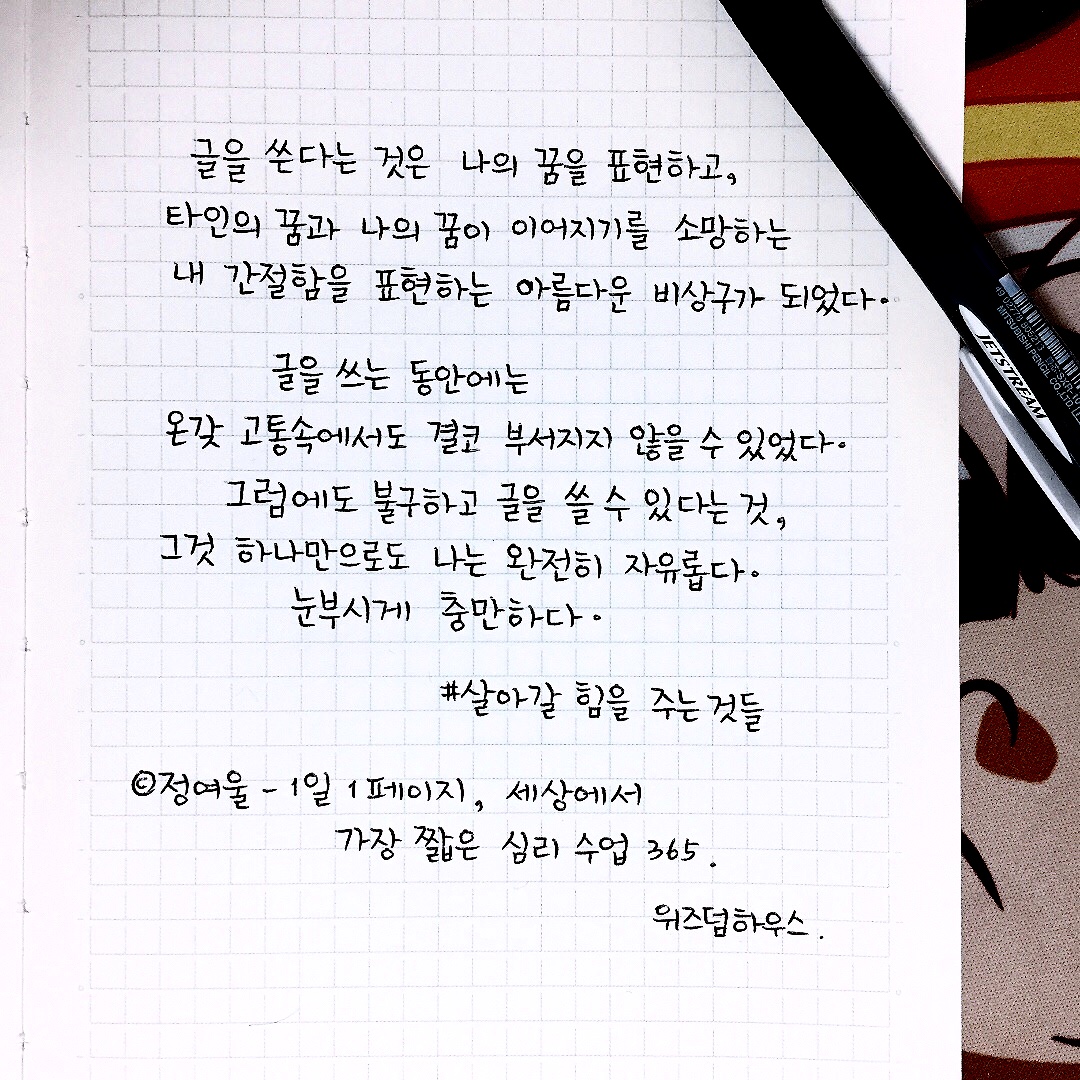 글을 쓴다는 것은 나의 꿈을 표현하고,
타인의 꿈과 나의 꿈이 이어지기를 소망하는
내 간절함을 표현하는 아름다운 비상구가 되었다.
글을 쓰는 동안에는
온갖 고통속에서도 결코 부서지지 않을 수 있었다.
그럼에도 불구하고 글을 쓸 수 있다는 것,
그것 하나만으로도 나는 완전히 자유롭다.
눈부시게 충만하다.
#살아갈 힘을 주는 것들
©정여울 - 1일 1페이지, 세상에서
가장 짧은 심리 수업 365.
위즈덤하우스.
JETSTREAM
MITSUBISHI PENCIL CO.,LTD